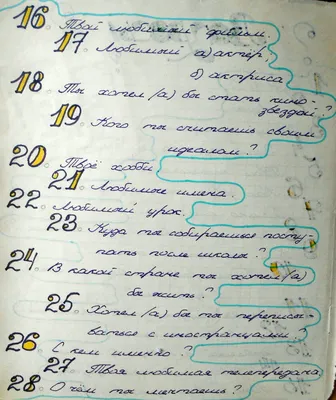 16. Твой любимый фильм.
17. Любимый а) актёр,
б) актриса
18. Ты хотел/а) бы стать кино-
звездой?
19. Кого ты считаешь своим
идеалом?
20. Твоё хобби.
21. Любимые имена.
22. Любимый урок.
23. Куда ты собираешься посту-
пать после школы?
24. В какой стране ты хотел/а)
бы жить?
25. Хотел/а) бы ты переписы-
ваться с иностранцами?
26. С кем именно?
27. Твоя любимая телепередача
28. О чём ты мечтаешь?